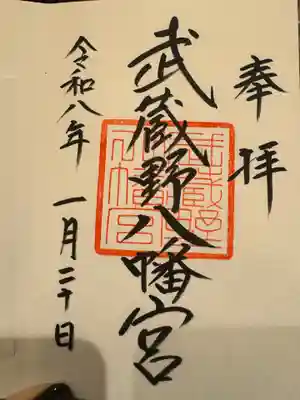 奉拝
武蔵野八幡宮
令和八年 一月二十日
武蔵野八幡宮